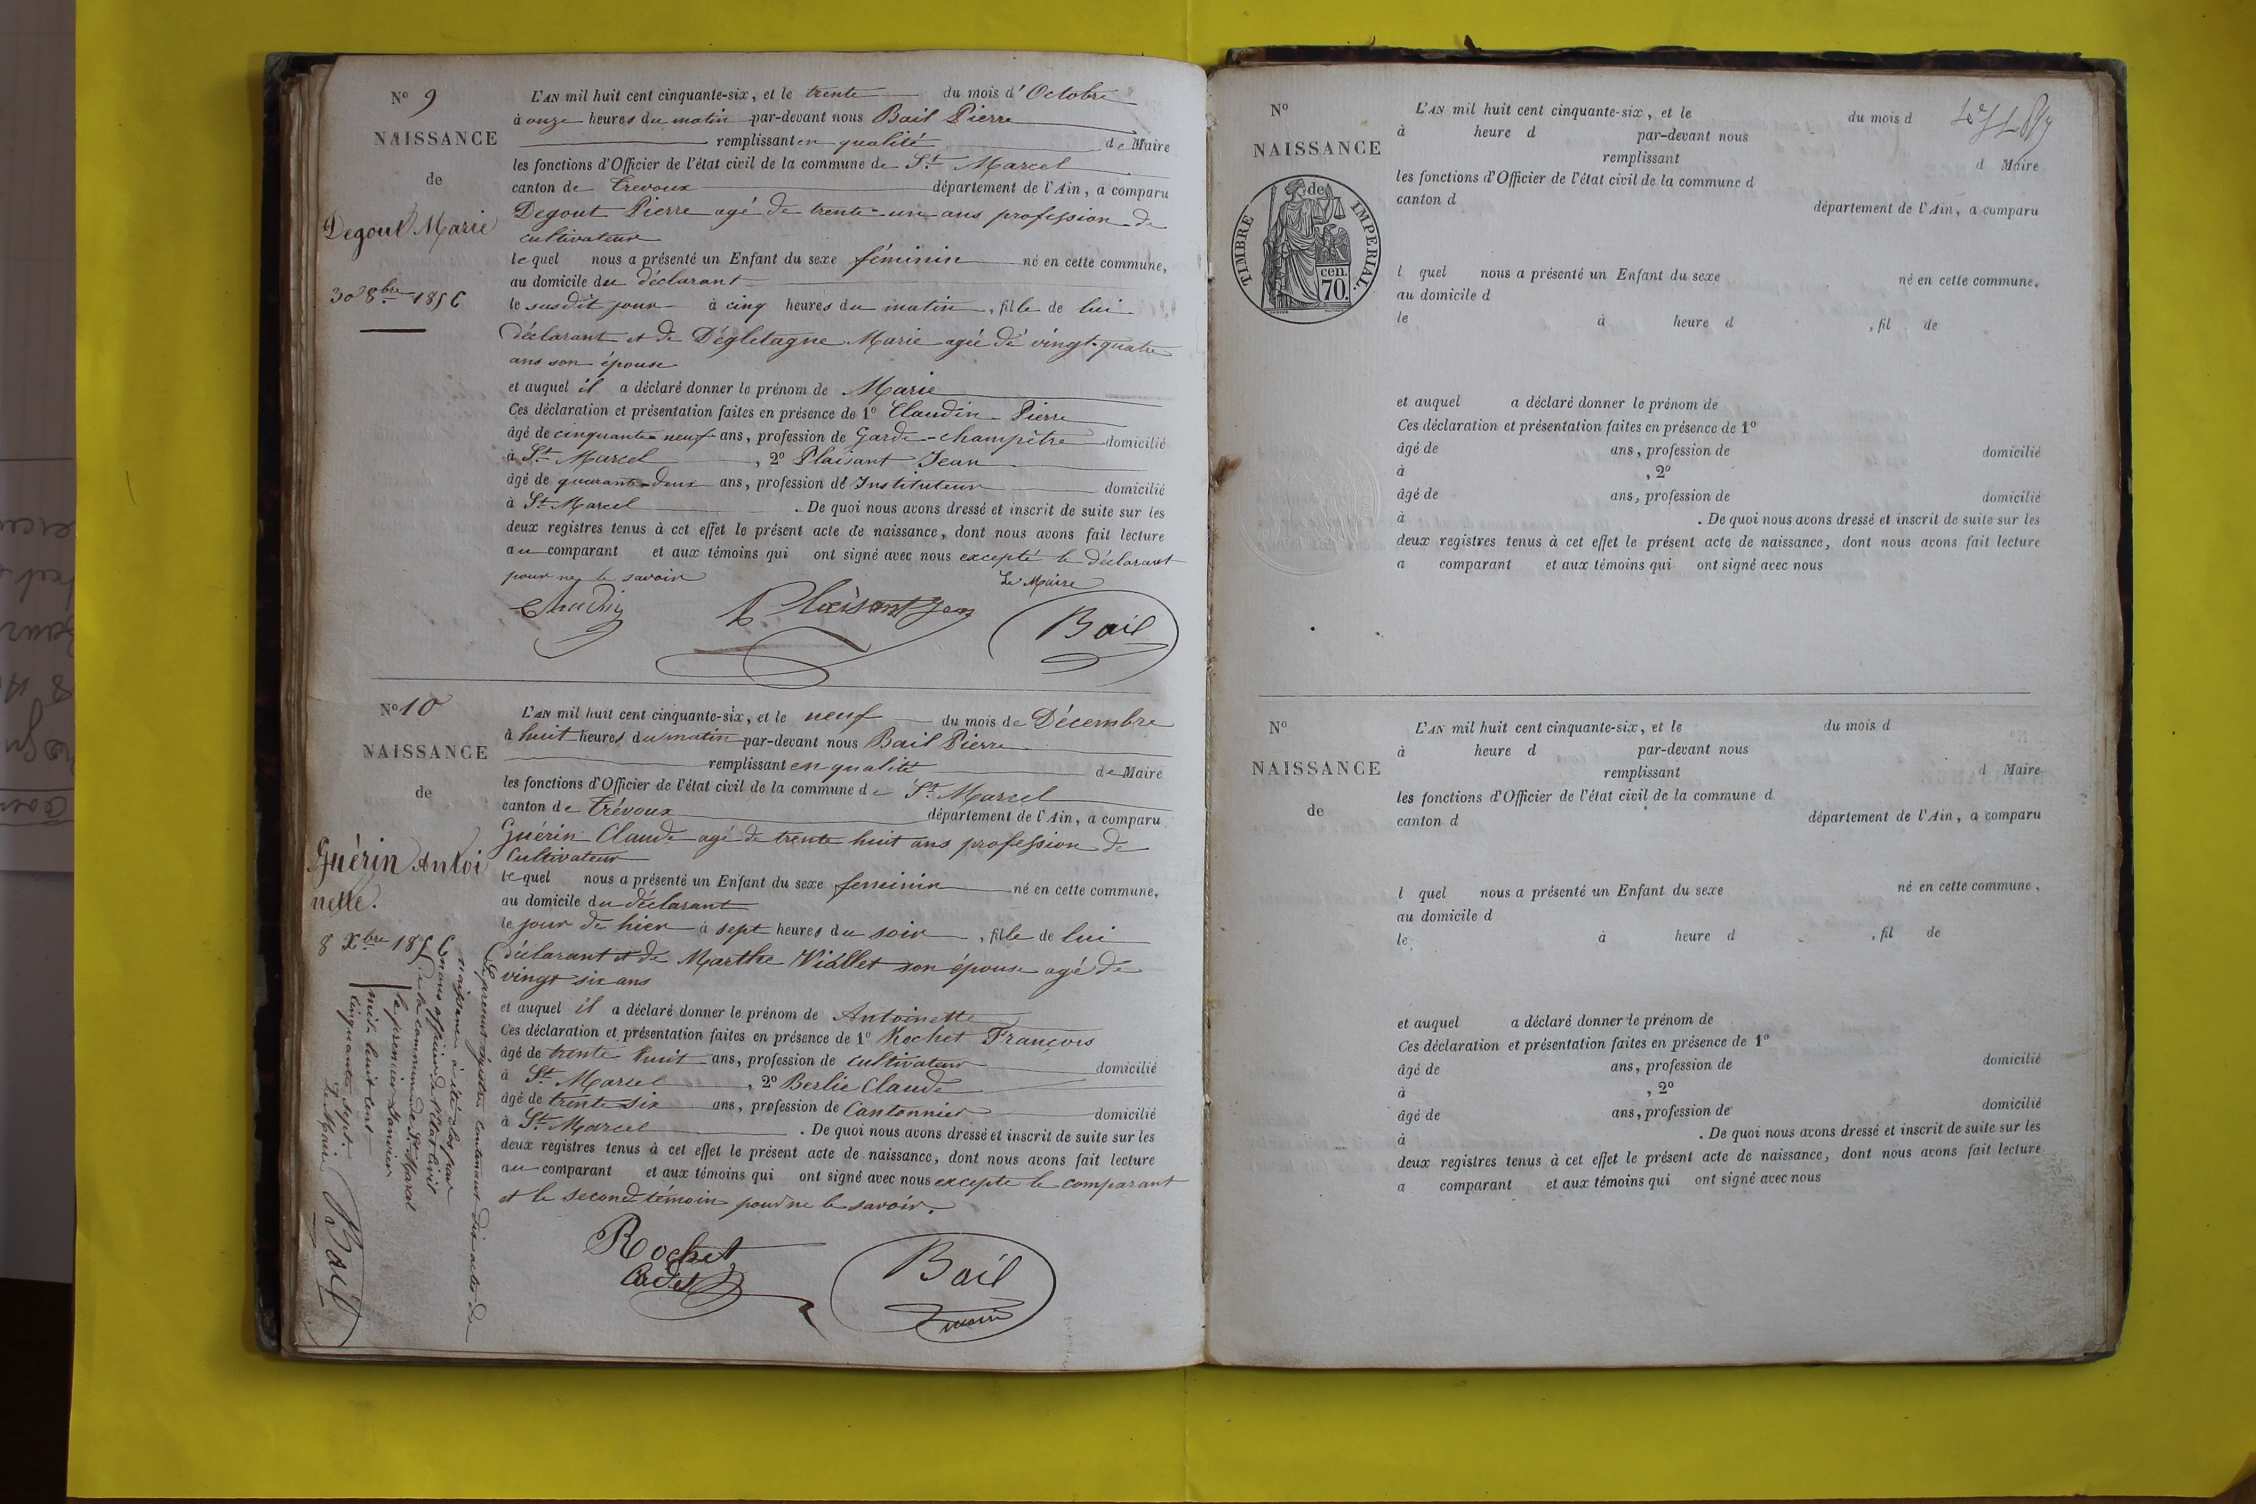 N° 9
NAISSANCE
de
Degout Marie
30 8bre 1856
L'AN mil huit cent cinquante-six, et le trente du mois d'Octobre
à onze heures du matin par-devant nous Bail Pierre
remplissant en qualité de Maire
les fonctions d'Officier de l'état civil de la commune de St Marcel
canton de Trevoux département de l'Ain, a comparu
Degout Pierre agé de trente-un ans profession de
cultivateur
le quel nous a présenté un Enfant du sexe féminin né en cette commune,
au domicile du déclarant
le susdit jour à cinq heures du matin, fille de lui
déclarant et de Dégletagne Marie agée de vingt-quatre
ans son épouse
et auquel il a déclaré donner le prénom de Marie
Ces déclaration et présentation faites en présence de 1° Claudin Pierre
âgé de cinquante-neuf ans, profession de Garde-champêtre domicilié
à St Marcel, 2° Plaisant Jean
âgé de quarante-deux ans, profession d'Instituteur domicilié
à St Marcel. De quoi nous avons dressé et inscrit de suite sur les
deux registres tenus à cet effet le présent acte de naissance, dont nous avons fait lecture
au comparant et aux témoins qui ont signé avec nous excepté le déclarant
pour ne le savoir
Le Maire
Claudin Plaisant Jean Bail
N° 10
NAISSANCE
de
Guérin Antoi
nette.
8 Xbre 1856
L'AN mil huit cent cinquante-six, et le neuf du mois de Décembre
à huit heures du matin par-devant nous Bail Pierre
remplissant en qualité de Maire
les fonctions d'Officier de l'état civil de la commune de St Marcel
canton de Trévoux département de l'Ain, a comparu
Guérin Claude agé de trente huit ans profession de
Cultivateur
le quel nous a présenté un Enfant du sexe feminin né en cette commune,
au domicile du déclarant
le jour de hier à sept heures du soir, fille de lui
déclarant et de Marthe Viallet son épouse agé de
vingt six ans
et auquel il a déclaré donner le prénom de Antoinette
Ces déclaration et présentation faites en présence de 1° Rochet François
âgé de trente huit ans, profession de cultivateur domicilié
à St Marcel, 2° Berlie Claude
âgé de trente six ans, profession de Cantonnier domicilié
à St Marcel. De quoi nous avons dressé et inscrit de suite sur les
deux registres tenus à cet effet le présent acte de naissance, dont nous avons fait lecture
au comparant et aux témoins qui ont signé avec nous excepte le comparant
et le second témoin pour ne le savoir.
Rochet Bail
Cadet maire
Le present registre contenant dix actes de
naissance à été clos par
nous officier de l'état civil
de la commune de St Marcel
le premier Janvier
mil huit cent
cinquante sept.
Le Maire
Bail
N°
NAISSANCE
de
TIMBRE IMPERIAL.
cen.
70.
L'AN mil huit cent cinquante-six, et le du mois d
à heure d par-devant nous
remplissant d Maire
les fonctions d'Officier de l'état civil de la commune d
canton d département de l'Ain, a comparu
l quel nous a présenté un Enfant du sexe né en cette commune,
au domicile d
le à heure d , fil de
et auquel a déclaré donner le prénom de
Ces déclaration et présentation faites en présence de 1°
âgé de ans, profession de domicilié
à , 2°
âgé de ans, profession de domicilié
à . De quoi nous avons dressé et inscrit de suite sur les
deux registres tenus à cet effet le présent acte de naissance, dont nous avons fait lecture
a comparant et aux témoins qui ont signé avec nous
N°
NAISSANCE
de
L'AN mil huit cent cinquante-six, et le du mois d
à heure d par-devant nous
remplissant d Maire
les fonctions d'Officier de l'état civil de la commune d
canton d département de l'Ain, a comparu
l quel nous a présenté un Enfant du sexe né en cette commune,
au domicile d
le à heure d , fil de
et auquel a déclaré donner le prénom de
Ces déclaration et présentation faites en présence de 1°
âgé de ans, profession de domicilié
à , 2°
âgé de ans, profession de domicilié
à . De quoi nous avons dressé et inscrit de suite sur les
deux registres tenus à cet effet le présent acte de naissance, dont nous avons fait lecture
a comparant et aux témoins qui ont signé avec nous